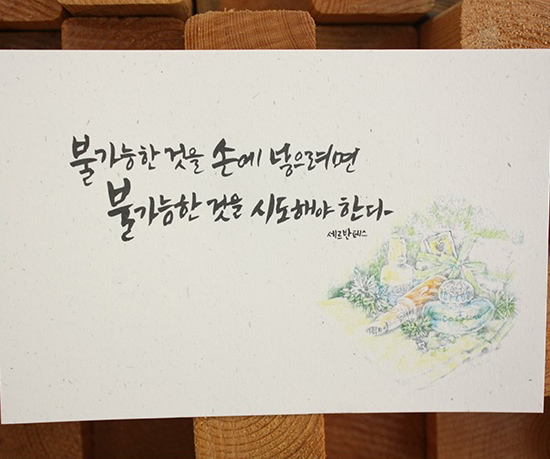 불가능한 것을 손에 넣으려면
불가능한 것을 시도해야 한다-
세르반테스